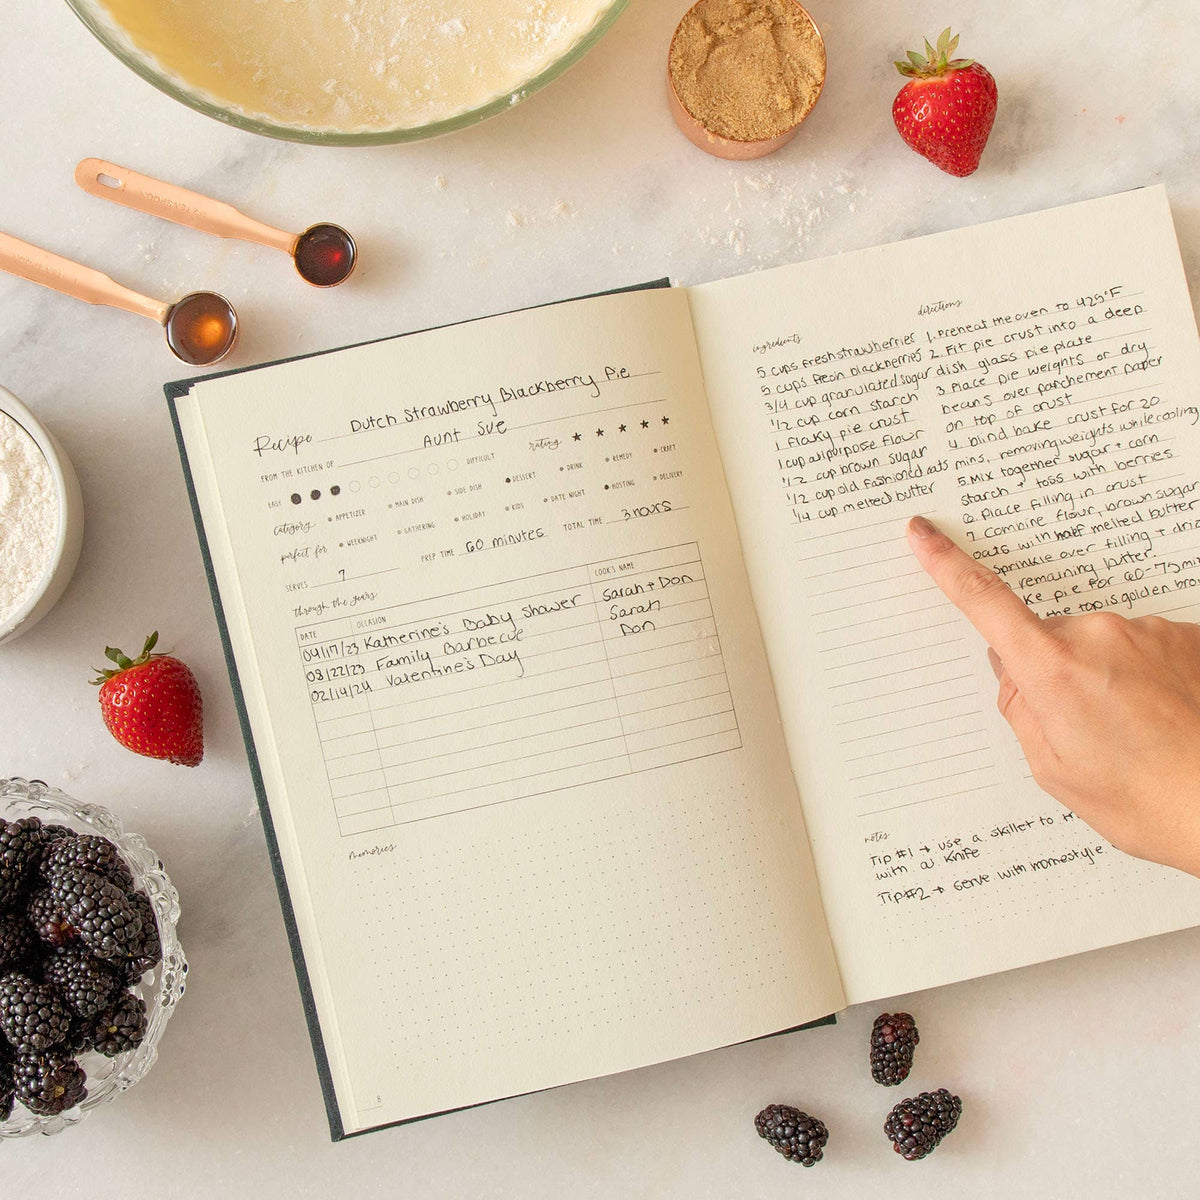 1/2 TEASPOON
Recipe Dutch Strawberry Blackberry Pie
FROM THE KITCHEN OF Aunt Sue
rating ★ ★ ★ ★ ★
EASY DIFFICULT
category APPETIZER MAIN DISH SIDE DISH DESSERT DRINK REMEDY CRAFT
perfect for WEEKNIGHT GATHERING HOLIDAY KIDS DATE NIGHT HOSTING DELIVERY
SERVES 7 PREP TIME 60 minutes TOTAL TIME 3 hours
through the years
DATE OCCASION COOK'S NAME
04/17/23 Katherine's Baby Shower Sarah + Don
08/22/23 Family Barbecue Sarah
02/14/24 Valentine's Day Don
memories
8
ingredients
5 cups fresh strawberries
5 cups fresh blackberries
3/4 cup granulated sugar
1/2 cup corn starch
1 flaky pie crust
1 cup all purpose flour
1/2 cup brown sugar
1/2 cup old fashioned oats
1/4 cup melted butter
directions
1. Preheat the oven to 425°F
2. Fit pie crust into a deep
dish glass pie plate
3 Place pie weights or dry
beans over parchement paper
on top of crust
4. blind bake crust for 20
mins, removing weights while cooling
5. Mix together sugar + corn
starch + toss with berries
6. Place filling in crust
7 Combine flour, brown sugar
oats with half melted butter
sprinkle over filling +
remaining butter.
pie for 60-75
the top is golden
notes
Tip #1 → use a skillet to
with a knife
Tip #2 → serve with homestyle